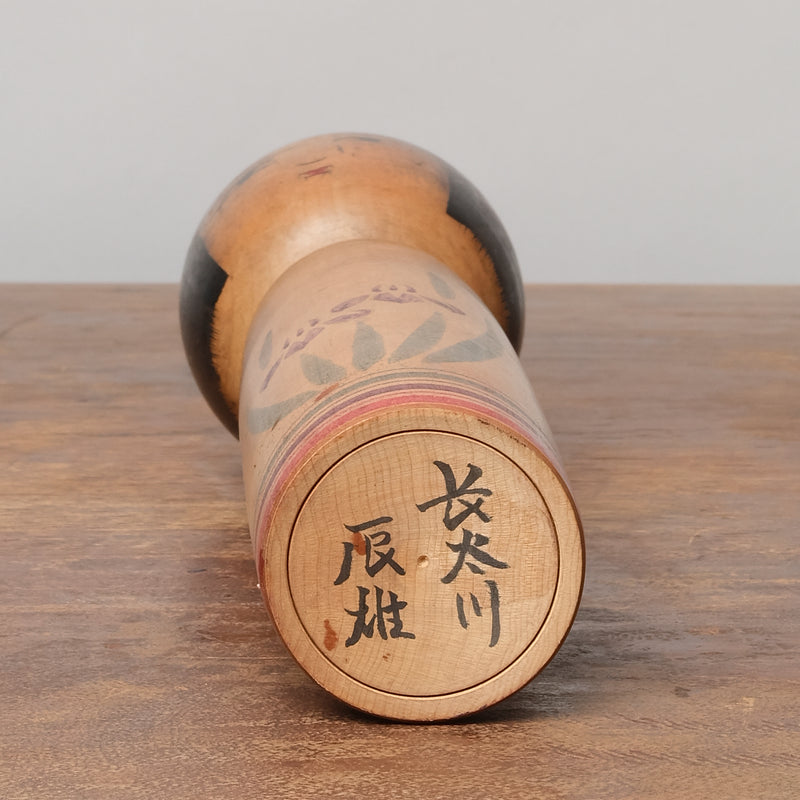 長太川
辰雄